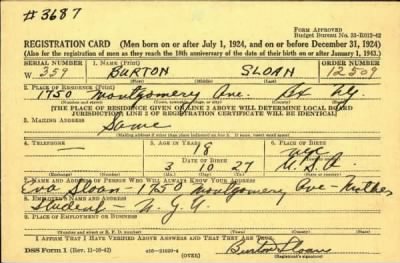 #3687
FORM APPROVED
Budget Bureau No. 33-R012-42
REGISTRATION CARD (Men born on or after July 1, 1924, and on or before December 31, 1924)
(Also for the registration of men as they reach the 18th anniversary of the date of their birth on or after January 1, 1943.)
SERIAL NUMBER 1. NAME (Print) ORDER NUMBER
W 359 BURTON SLOAN 12509
(First) (Middle) (Last)
2. PLACE OF RESIDENCE (Print)
1750 Montgomery Ave. Bx NY.
(Number and street) (Town, township, village, or city) (County) (State)
[THE PLACE OF RESIDENCE GIVEN ON LINE 2 ABOVE WILL DETERMINE LOCAL BOARD
JURISDICTION; LINE 2 OF REGISTRATION CERTIFICATE WILL BE IDENTICAL]
3. MAILING ADDRESS
Same
[Mailing address if other than place indicated on line 2. If same insert word same]
4. TELEPHONE 5. AGE IN YEARS 6. PLACE OF BIRTH
— 18 NYC
DATE OF BIRTH
3 10 27 U.S.A.
(Mo.) (Day) (Yr.)
7. NAME AND ADDRESS OF PERSON WHO WILL ALWAYS KNOW YOUR ADDRESS
Eva Sloan - 1750 Montgomery Ave - Mother
8. EMPLOYER'S NAME AND ADDRESS
Student - N.Y.U.
9. PLACE OF EMPLOYMENT OR BUSINESS
(Number and street or R. F. D. number) (Town) (County) (State)
I AFFIRM THAT I HAVE VERIFIED ABOVE ANSWERS AND THAT THEY ARE TRUE.
DSS Form 1 (Rev. 11-16-42) (OVER) Burton Sloan
(Registrant's signature)